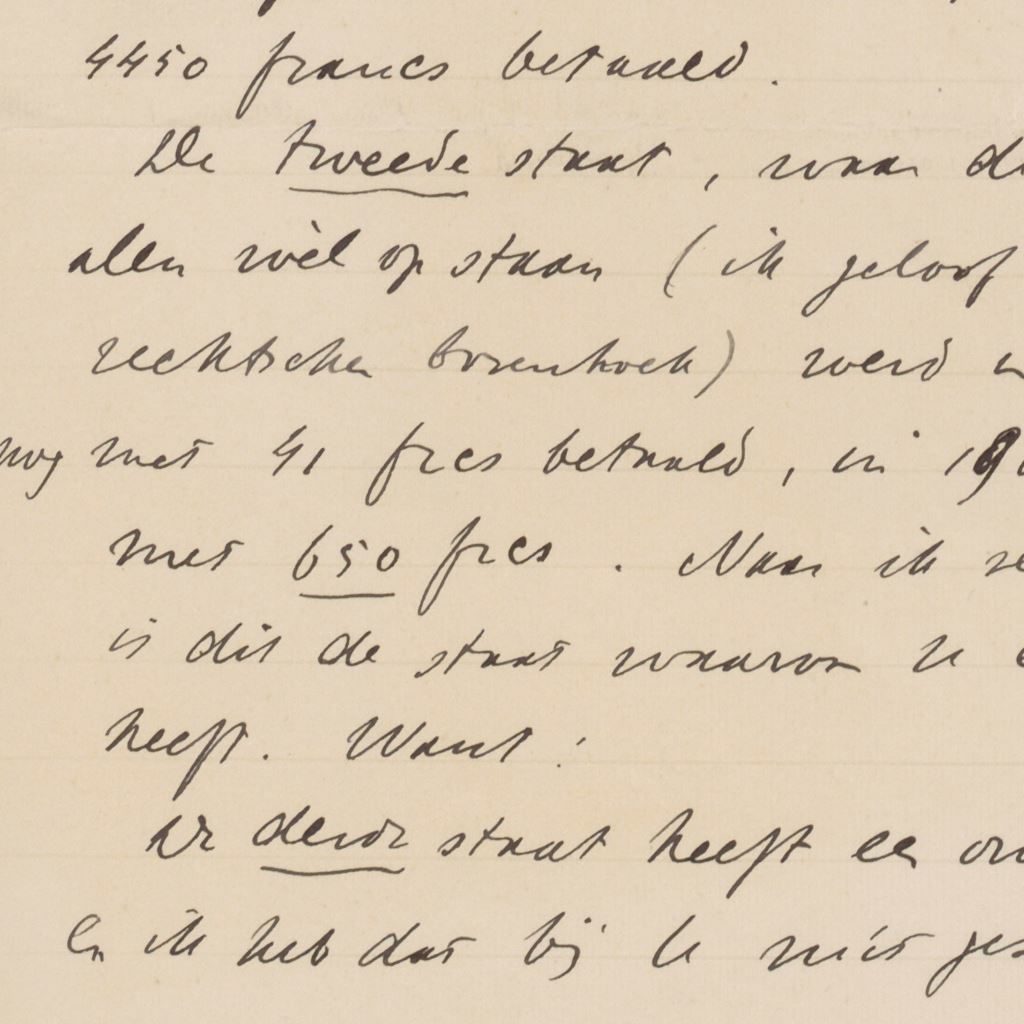 4450 francs betaald.
De tweede staat, waar d
allen wèl op staan (ik geloof
rechtschen bovenhoek) werd
nog met 41 frcs betaald, in 19
met 650 frcs. Naar ik
is dit de staat waarvan U
heeft. Want:
de derde staat heeft een
En ik heb dat bij U niet ges